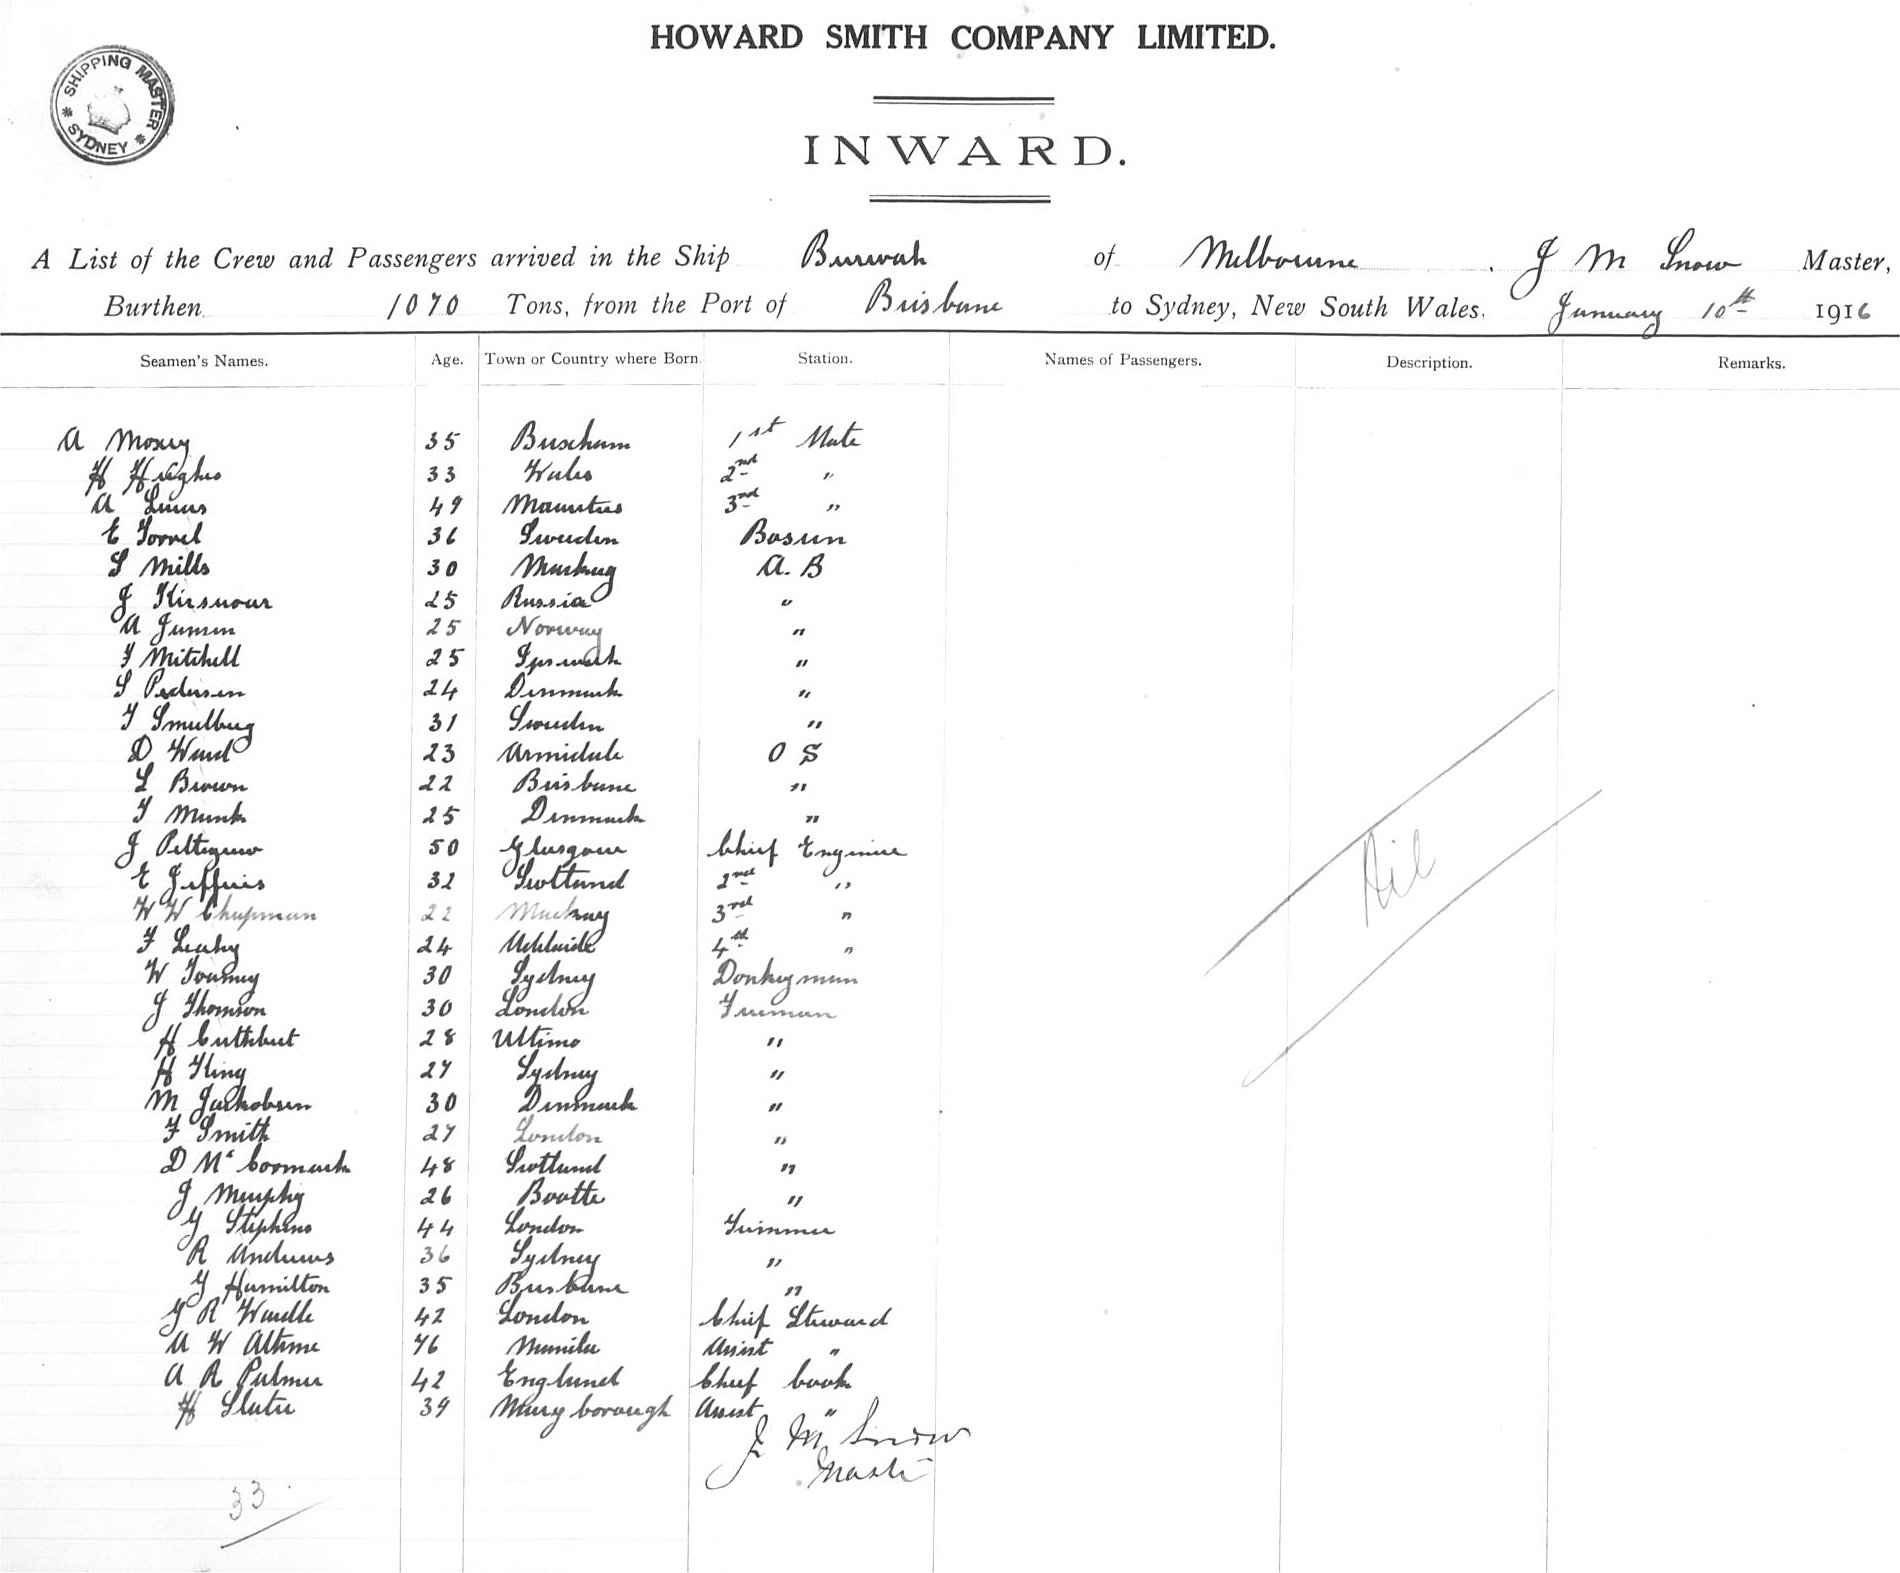 HOWARD SMITH COMPANY LIMITED.
SHIPPING MASTER SYDNEY
INWARD.
A List of the Crew and Passengers arrived in the Ship Burwah of Melbourne. J M Snow Master,
Burthen 1070 Tons, from the Port of Brisbane to Sydney, New South Wales. January 10th 1916
Seamen's Names. Age. Town or Country where Born. Station. Names of Passengers. Description. Remarks.
A Moxey 35 1st Mate
H Hughes 33 Wales 2nd "
A 49 Mauritius 3rd "
E 36 Sweden Bosun
S Mills 30 Mackay A. B
J 25 Russia "
A Jensen 25 Norway "
F Mitchell 25 Ipswich "
S Pedersen 24 Denmark "
F 31 Sweden "
D Ward 23 Armidale O S
L Brown 22 Brisbane "
F Munk 25 Denmark "
J Pettigrew 50 Glasgow Chief Engineer
E Jeffries 32 Scotland 2nd "
W W Chapman 22 Mackay 3rd "
F Leahy 24 Adelaide 4th "
W 30 Sydney Donkeyman
J Thomson 30 London Fireman
H Cuthbert 28 Ultimo "
H King 27 Sydney "
M Jackobsen 30 Denmark "
F Smith 27 London "
D McCormack 48 Scotland "
J Murphy 26 Bootle "
G Stephens 44 London Trimmer
R Andrews 36 Sydney "
G Hamilton 35 Brisbane "
G R Wardle 42 London Chief Steward
A W 46 Manila Assist "
A R Palmer 42 England Chief Cook
H Slater 39 Maryborough Assist "
J M Snow
Master
Nil
33